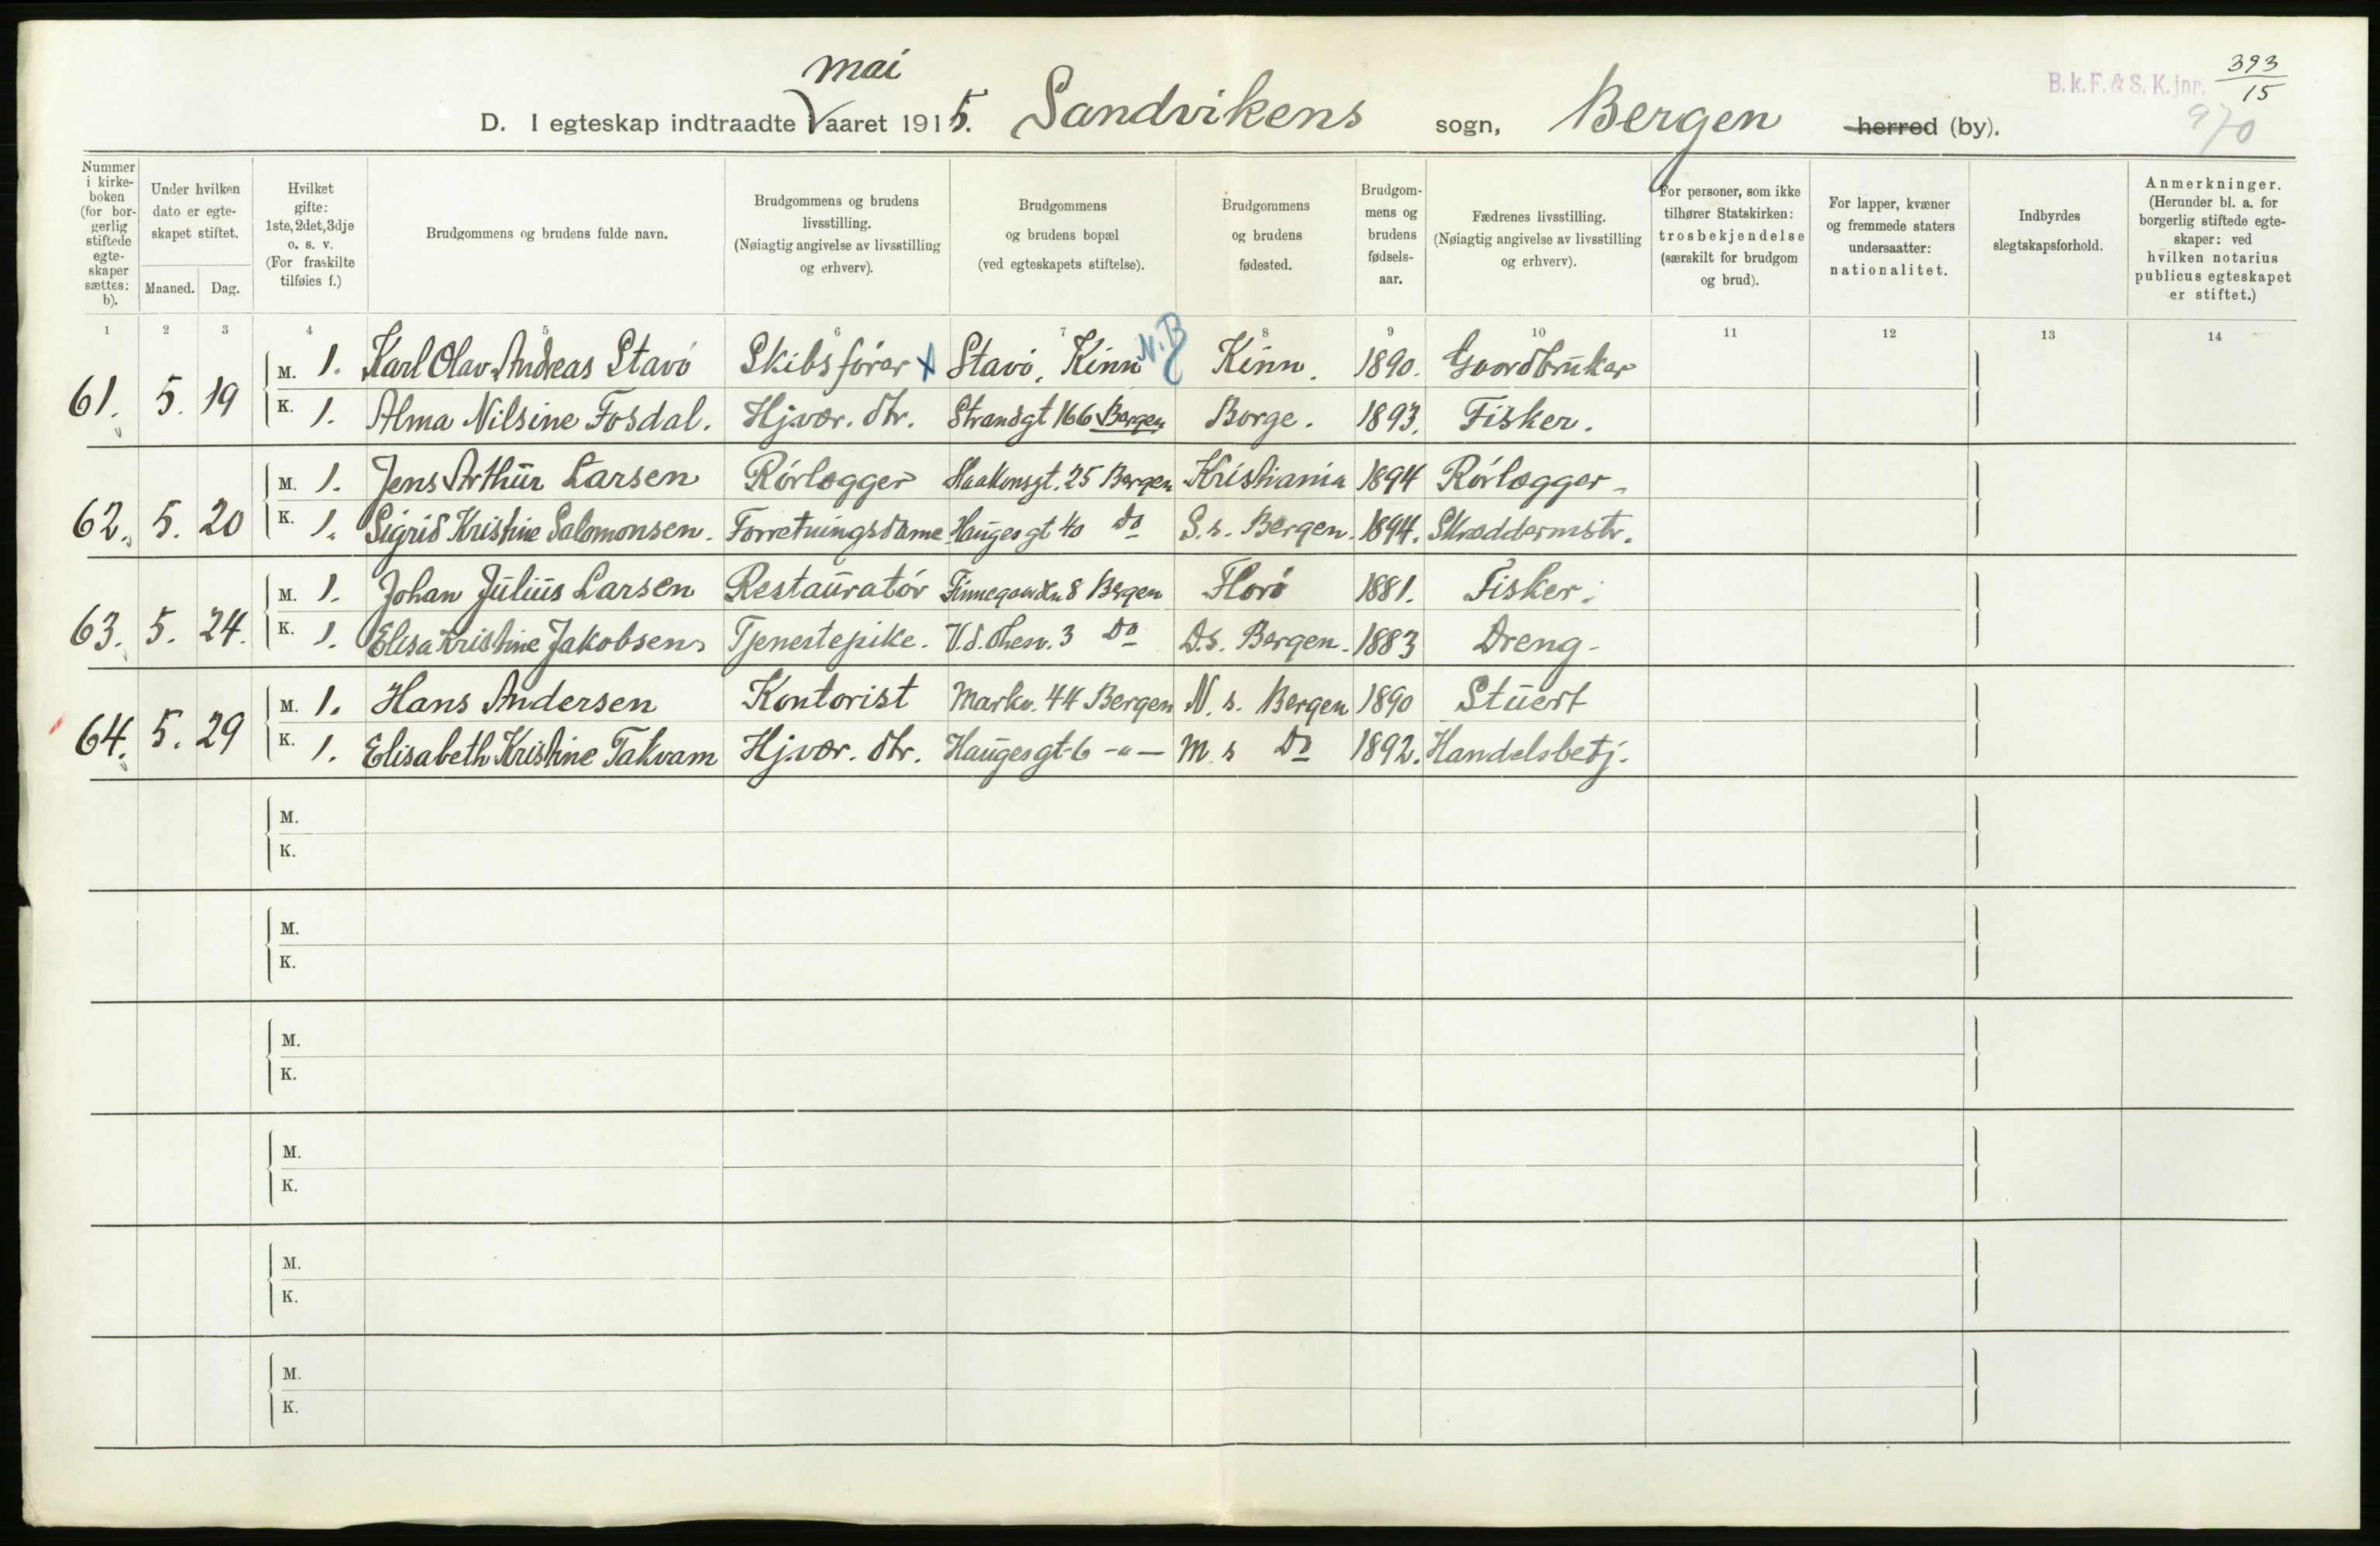 mai
B. k. F. & S. K. jnr. 393/15
970
D. I egteskap indtraadte i aaret 1915. Sandvikens sogn, Bergen herred (by).
Nummer i kirke-boken (for bor-gerlig stiftede egte-skaper sættes: b).
Under hvilken dato er egte-skapet stiftet.
Maaned. Dag.
Hvilket gifte: 1ste, 2det, 3dje o. s. v. (For fraskilte tilføies f.)
Brudgommens og brudens fulde navn.
Brudgommens og brudens livsstilling. (Nøiagtig angivelse av livsstilling og erhverv).
Brudgommens og brudens bopæl (ved egteskapets stiftelse).
Brudgommens og brudens fødested.
Brudgom-mens og brudens fødsels-aar.
Fædrenes livsstilling. (Nøiagtig angivelse av livsstilling og erhverv).
For personer, som ikke tilhører Statskirken: trosbekjendelse (særskilt for brudgom og brud).
For lapper, kvæner og fremmede staters undersaatter: nationalitet.
Indbyrdes slegtskapsforhold.
Anmerkninger. (Herunder bl. a. for borgerlig stiftede egte-skaper: ved hvilken notarius publicus egteskapet er stiftet.)
1 2 3 4 5 6 7 8 9 10 11 12 13 14
61. 5. 19 M. 1. Karl Olav Andreas Stavø Skibsfører x Stavø, Kinn N.B Kinn. 1890. Gaardbruker
K. 1. Alma Nilsine Fosdal. Hj.vær. dtr. Strandgt 166 Bergen Borge. 1893. Fisker.
62. 5. 20 M. 1. Jens Arthur Larsen Rørlægger Haakonsgt. 25 Bergen Kristiania 1894 Rørlægger
K. 1. Sigrid Kristine Salomonsen. Forretningsdame Haugesgt 40 do S. s. Bergen. 1894. Skræddermstr.
63. 5. 24. M. 1. Johan Julius Larsen Restauratør 8 Bergen Florø 1881. Fisker.
K. 1. Elisa Kristine Jakobsen Tjenestepike. 3 do D.s. Bergen. 1883 Dreng
64. 5. 29 M. 1. Hans Andersen Kontorist Markv. 44 Bergen N. s. Bergen 1890 Stuert
K. 1. Elisabeth Kristine Takvam Hj.vær. dtr. Haugesgt 6 -"- M. s do 1892. Handelsbetj.
M.
K.
M.
K.
M.
K.
M.
K.
M.
K.
M.
K.